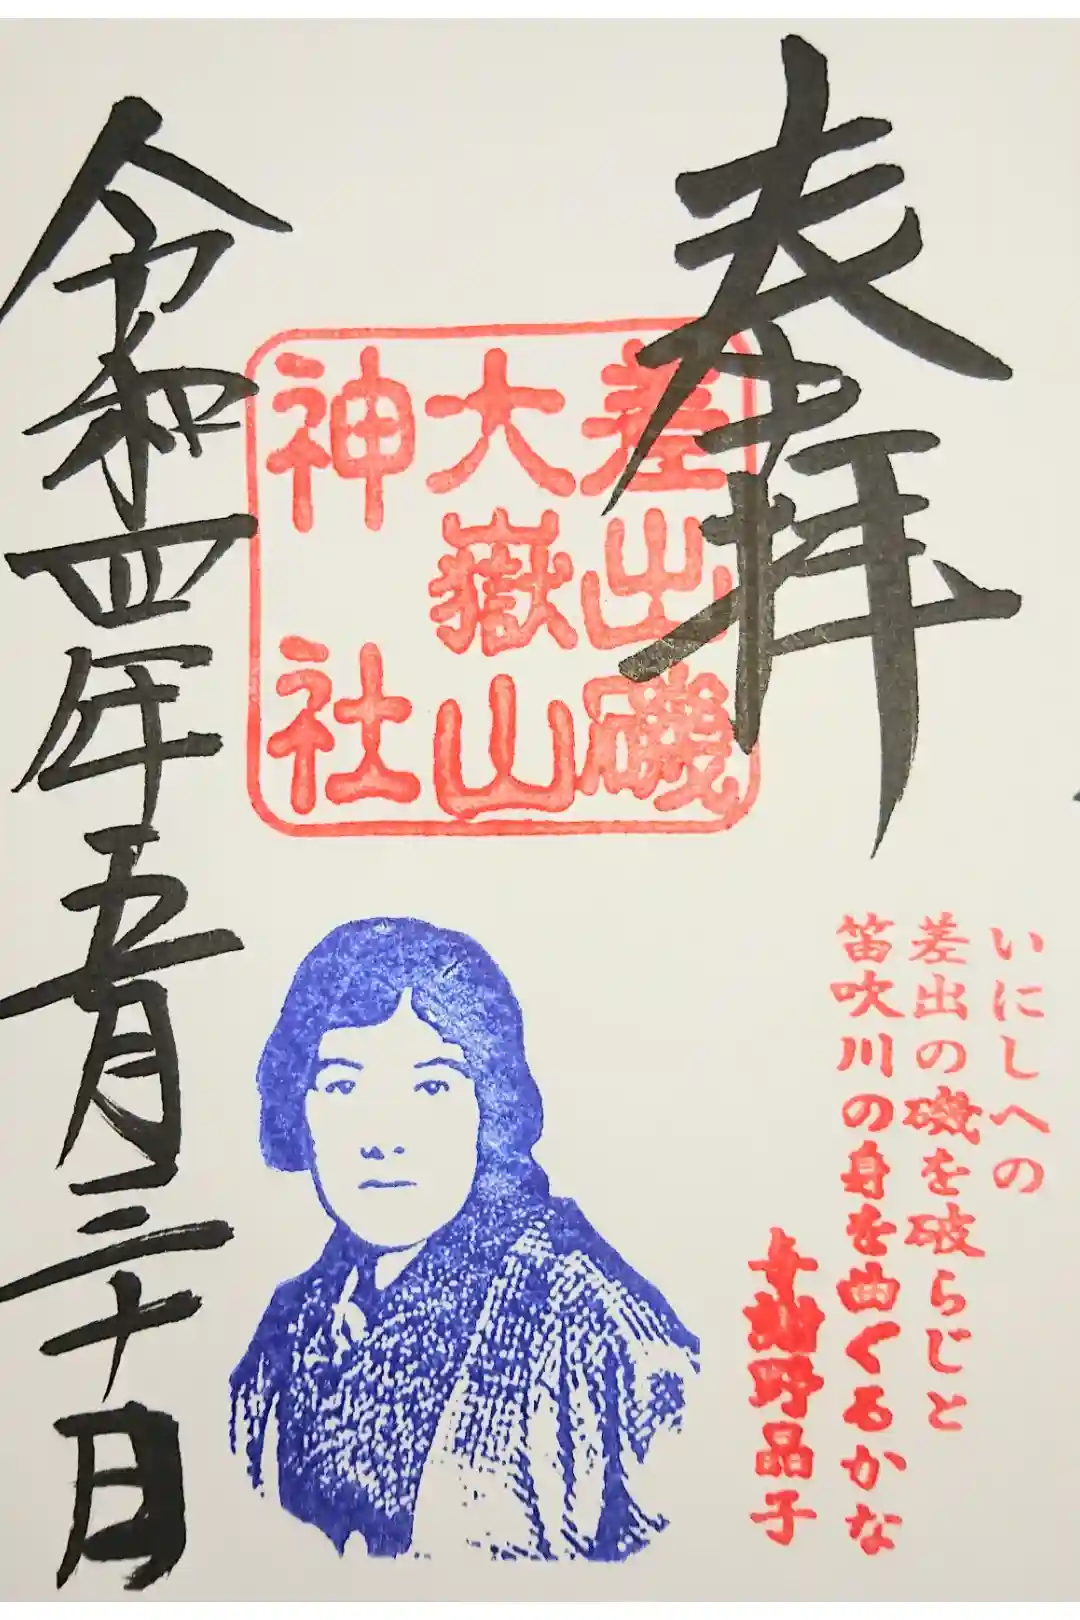 奉拝
差出磯
大嶽山
神社
いにしへの
差出の磯を破らじと
笛吹川の身を曲くるかな
与謝野晶子
令和四年五月三十日